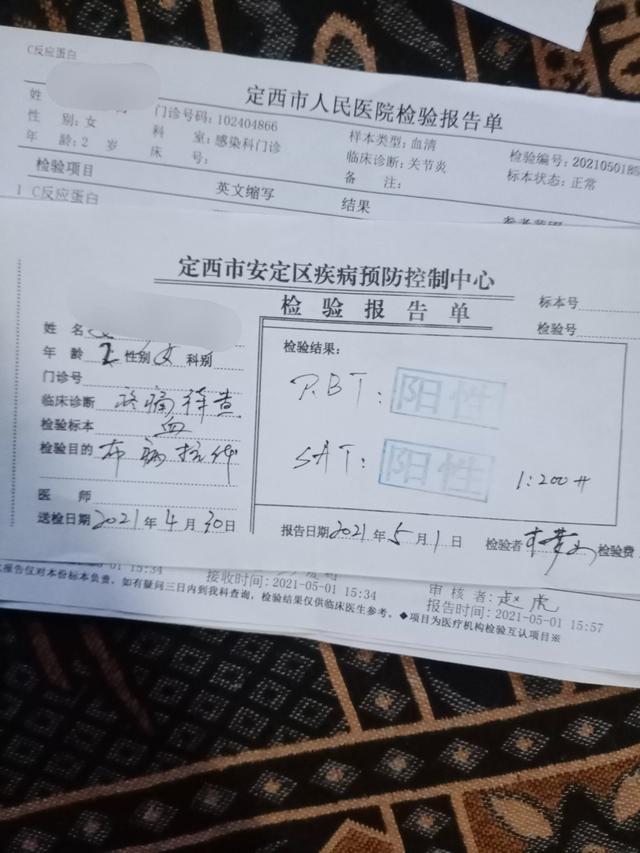 C反应蛋白
定西市人民医院检验报告单
姓
门诊号码:102404866
样本类型:血清
检验编号:2021050185
性 别:女
科 室:感染科门诊
临床诊断:关节炎
标本状态:正常
年 龄:2 岁
床 号:
备 注:
检验项目
英文缩写
结果
1 C反应蛋白
定西市安定区疾病预防控制中心
检验报告单
标本号
检验号
姓 名
年 龄 2 性别 女 科别
门诊号
临床诊断 疼痛待查
检验标本 血
检验目的 布病抗体
医 师
送检日期 2021年4月30日
检验结果:
RBT: 阳性
SAT: 阳性 1:200 ++
报告日期 2021年5月1日 检验者 检验费
05-01 15:34
接收时间:2021-05-01 15:34
审 核 者:赵虎
报告仅对本份标本负责, 如有疑问三日内到我科查询, 检验结果仅供临床医生参考。◆项目为医疗机构检验互认项目※
报告时间:2021-05-01 15:57